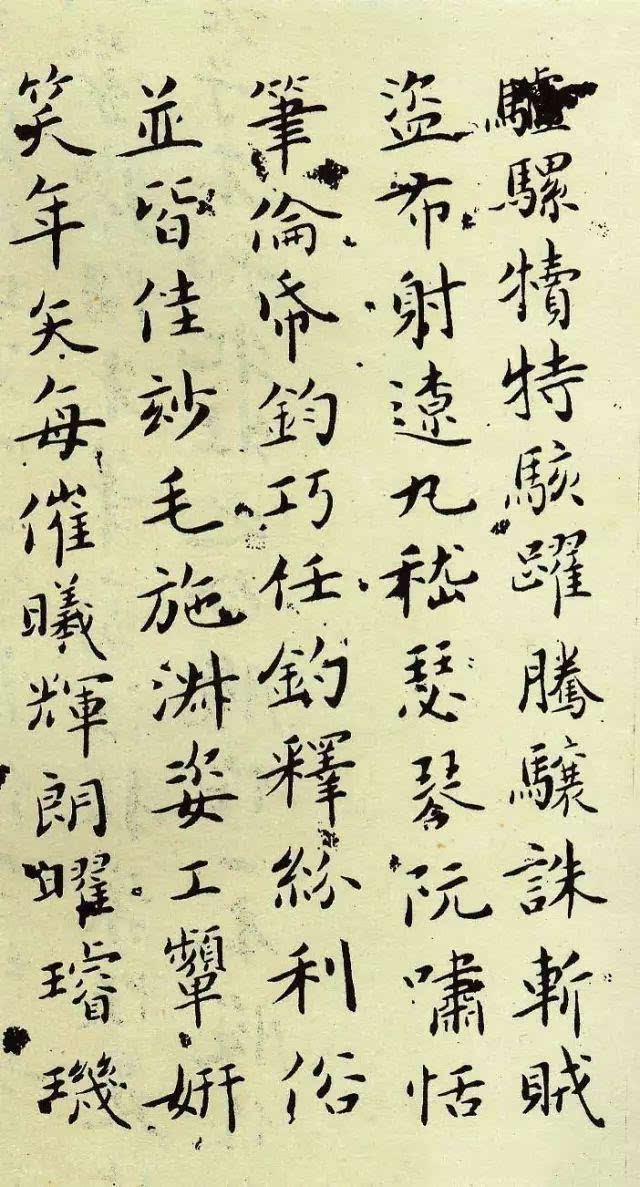 驢騾犢特駭躍騰驤誅斬賊
盜布射遼丸嵇瑟琴阮嘯恬
筆倫帋鈞巧任釣釋紛利俗
並皆佳玅毛施淑姿工顰妍
笑年矢每催曦輝朗曜璿璣